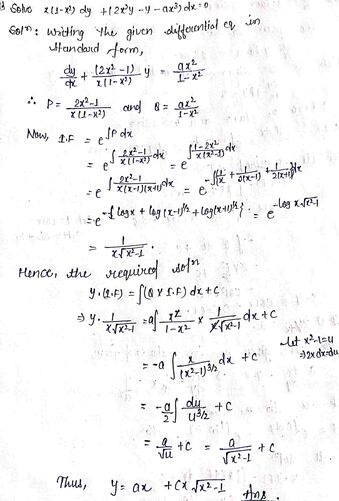 Solve x(1-x²) dy + (2x²y - y - ax³) dx = 0
Solⁿ: Writing the given differential eq in
standard form,
dy/dx + (2x²-1)/(x(1-x²)) y = ax²/(1-x²)
∴ P = (2x²-1)/(x(1-x²)) and Q = ax²/(1-x²)
Now, I.F = e^∫P dx
= e^∫(2x²-1)/(x(1-x²)) dx = e^∫(1-2x²)/(x(x²-1)) dx
= e^∫(2x²-1)/(x(x-1)(x+1)) dx = e^-∫{1/x + 1/(2(x-1)) + 1/(2(x+1))} dx
= e^-{log x + log(x-1)^1/2 + log(x+1)^1/2} = e^-log x√(x²-1)
= 1/(x√(x²-1)).
Hence, the required solⁿ
y.(I.F) = ∫(Q x I.F) dx + C
⇒ y. 1/(x√(x²-1)) = a∫ x²/(1-x²) × 1/(x√(x²-1)) dx + C
= -a ∫ x/(x²-1)^3/2 dx + C
Let x²-1=u
⇒2x dx=du
= -a/2 ∫ du/u^3/2 + C
= a/√u + C = a/√(x²-1) + C
Thus, y = ax + Cx√(x²-1) Ans.